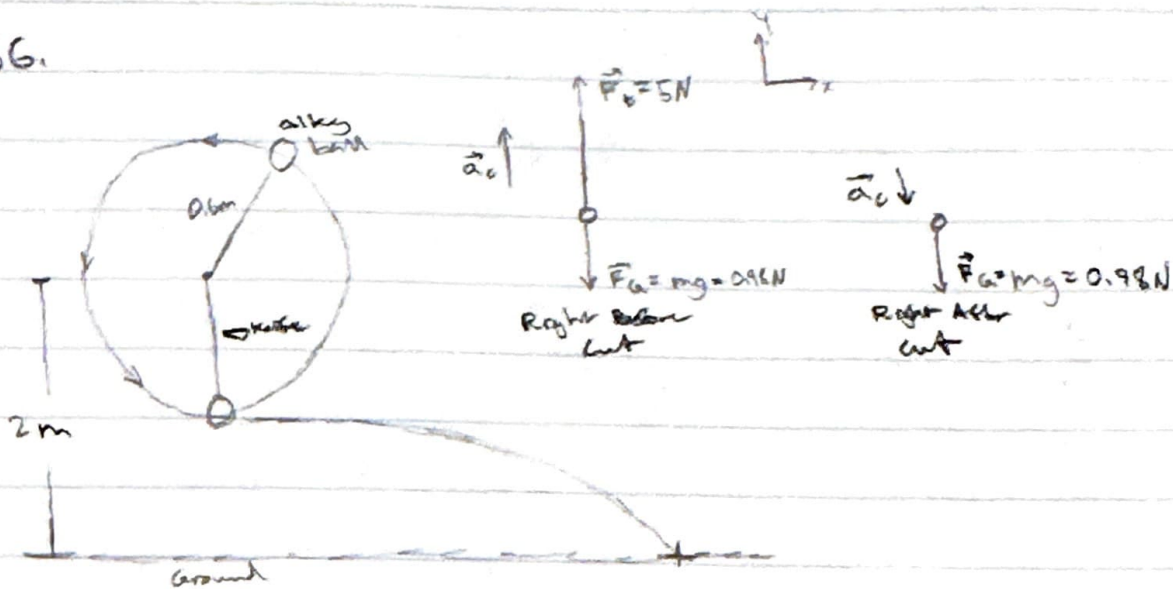 6.
y
x
ball
0.6m
2m
Ground
a⃗c
F⃗t = 5N
F⃗G = mg = 0.98N
Right Before
cut
a⃗c
F⃗G = mg = 0.98N
Right After
cut